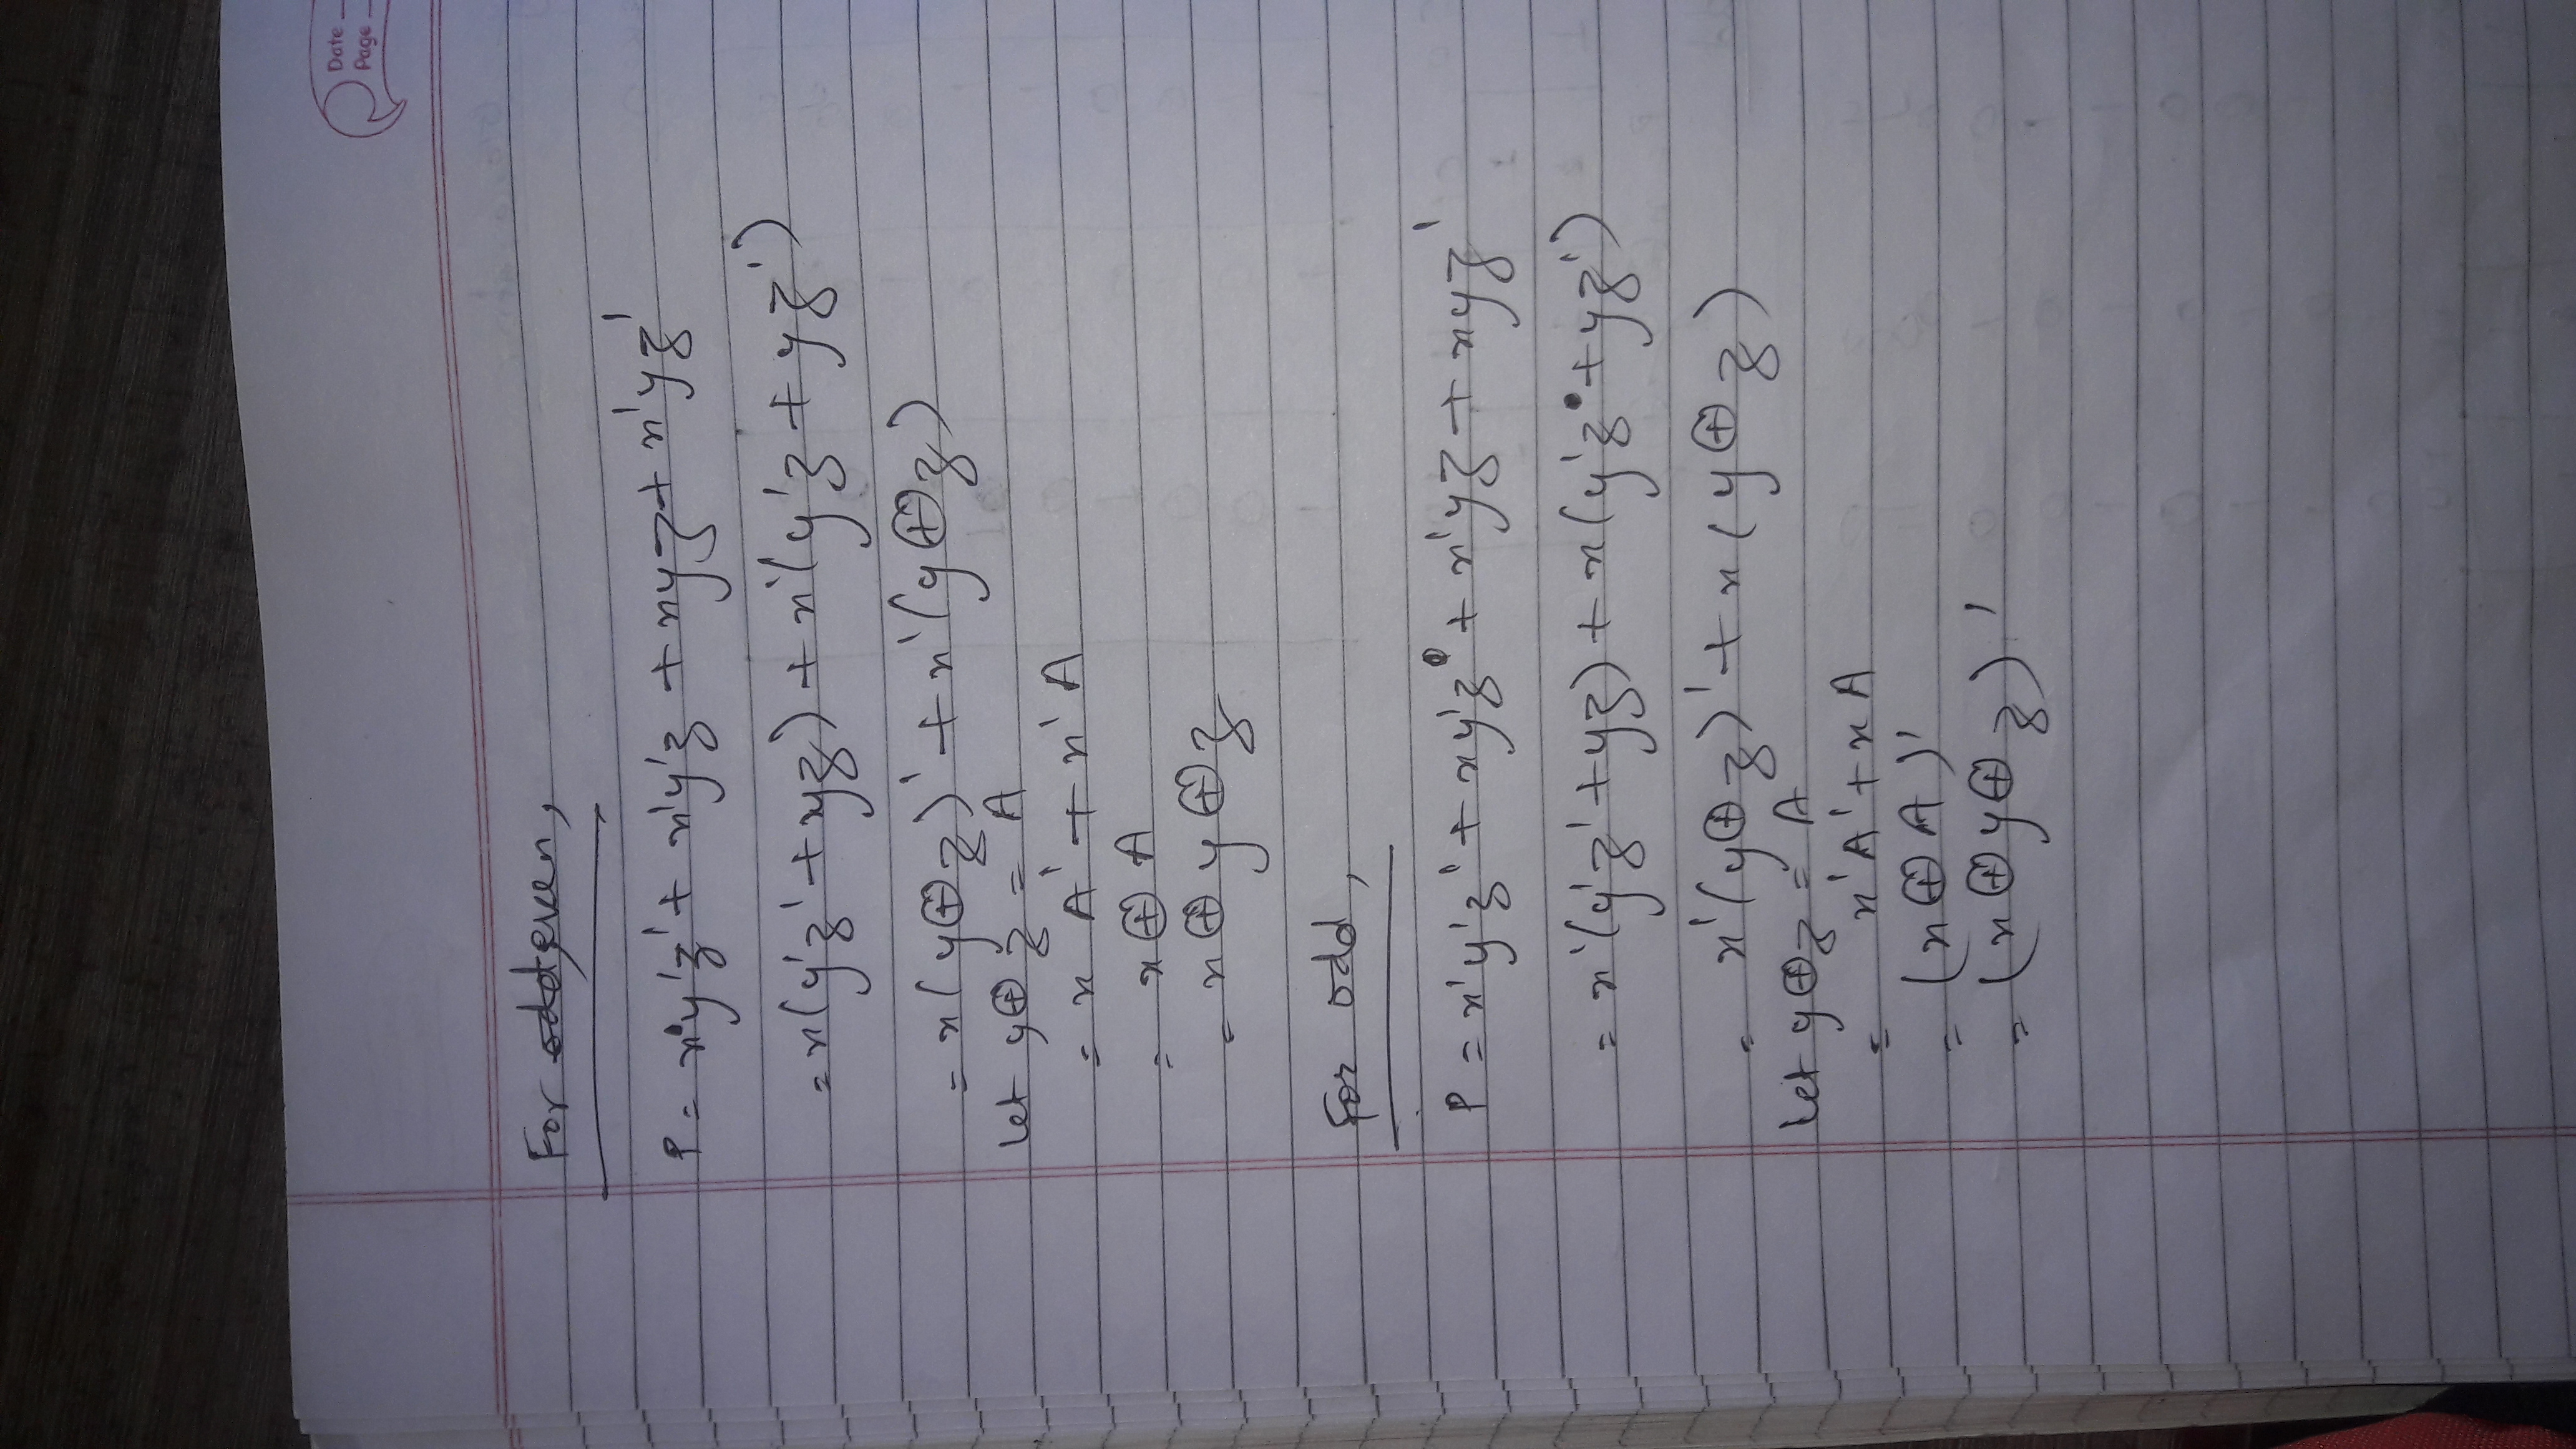 Date
Page
For even,
P = xy'z' + x'y'z + xyz + x'yz'
= x(y'z' + xyz) + x'(y'z + yz')
= x(y⊕z)' + x'(y⊕z)
let y⊕z = A
= x A' + x' A
= x⊕A
= x⊕y⊕z
For odd,
P = x'y'z' + xy'z + x'yz + xyz'
= x'(y'z' + yz) + x(y'z + yz')
= x'(y⊕z)' + x(y⊕z)
let y⊕z = A
= x'A' + xA
= (x⊕A)'
= (x⊕y⊕z)'